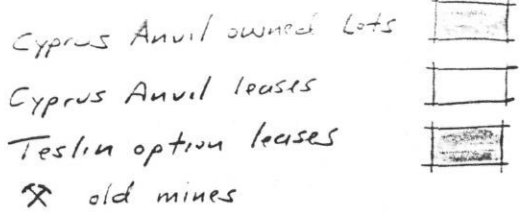 Cyprus Anvil owned Lots
Cyprus Anvil leases
Teslin option leases
⚒ old mines